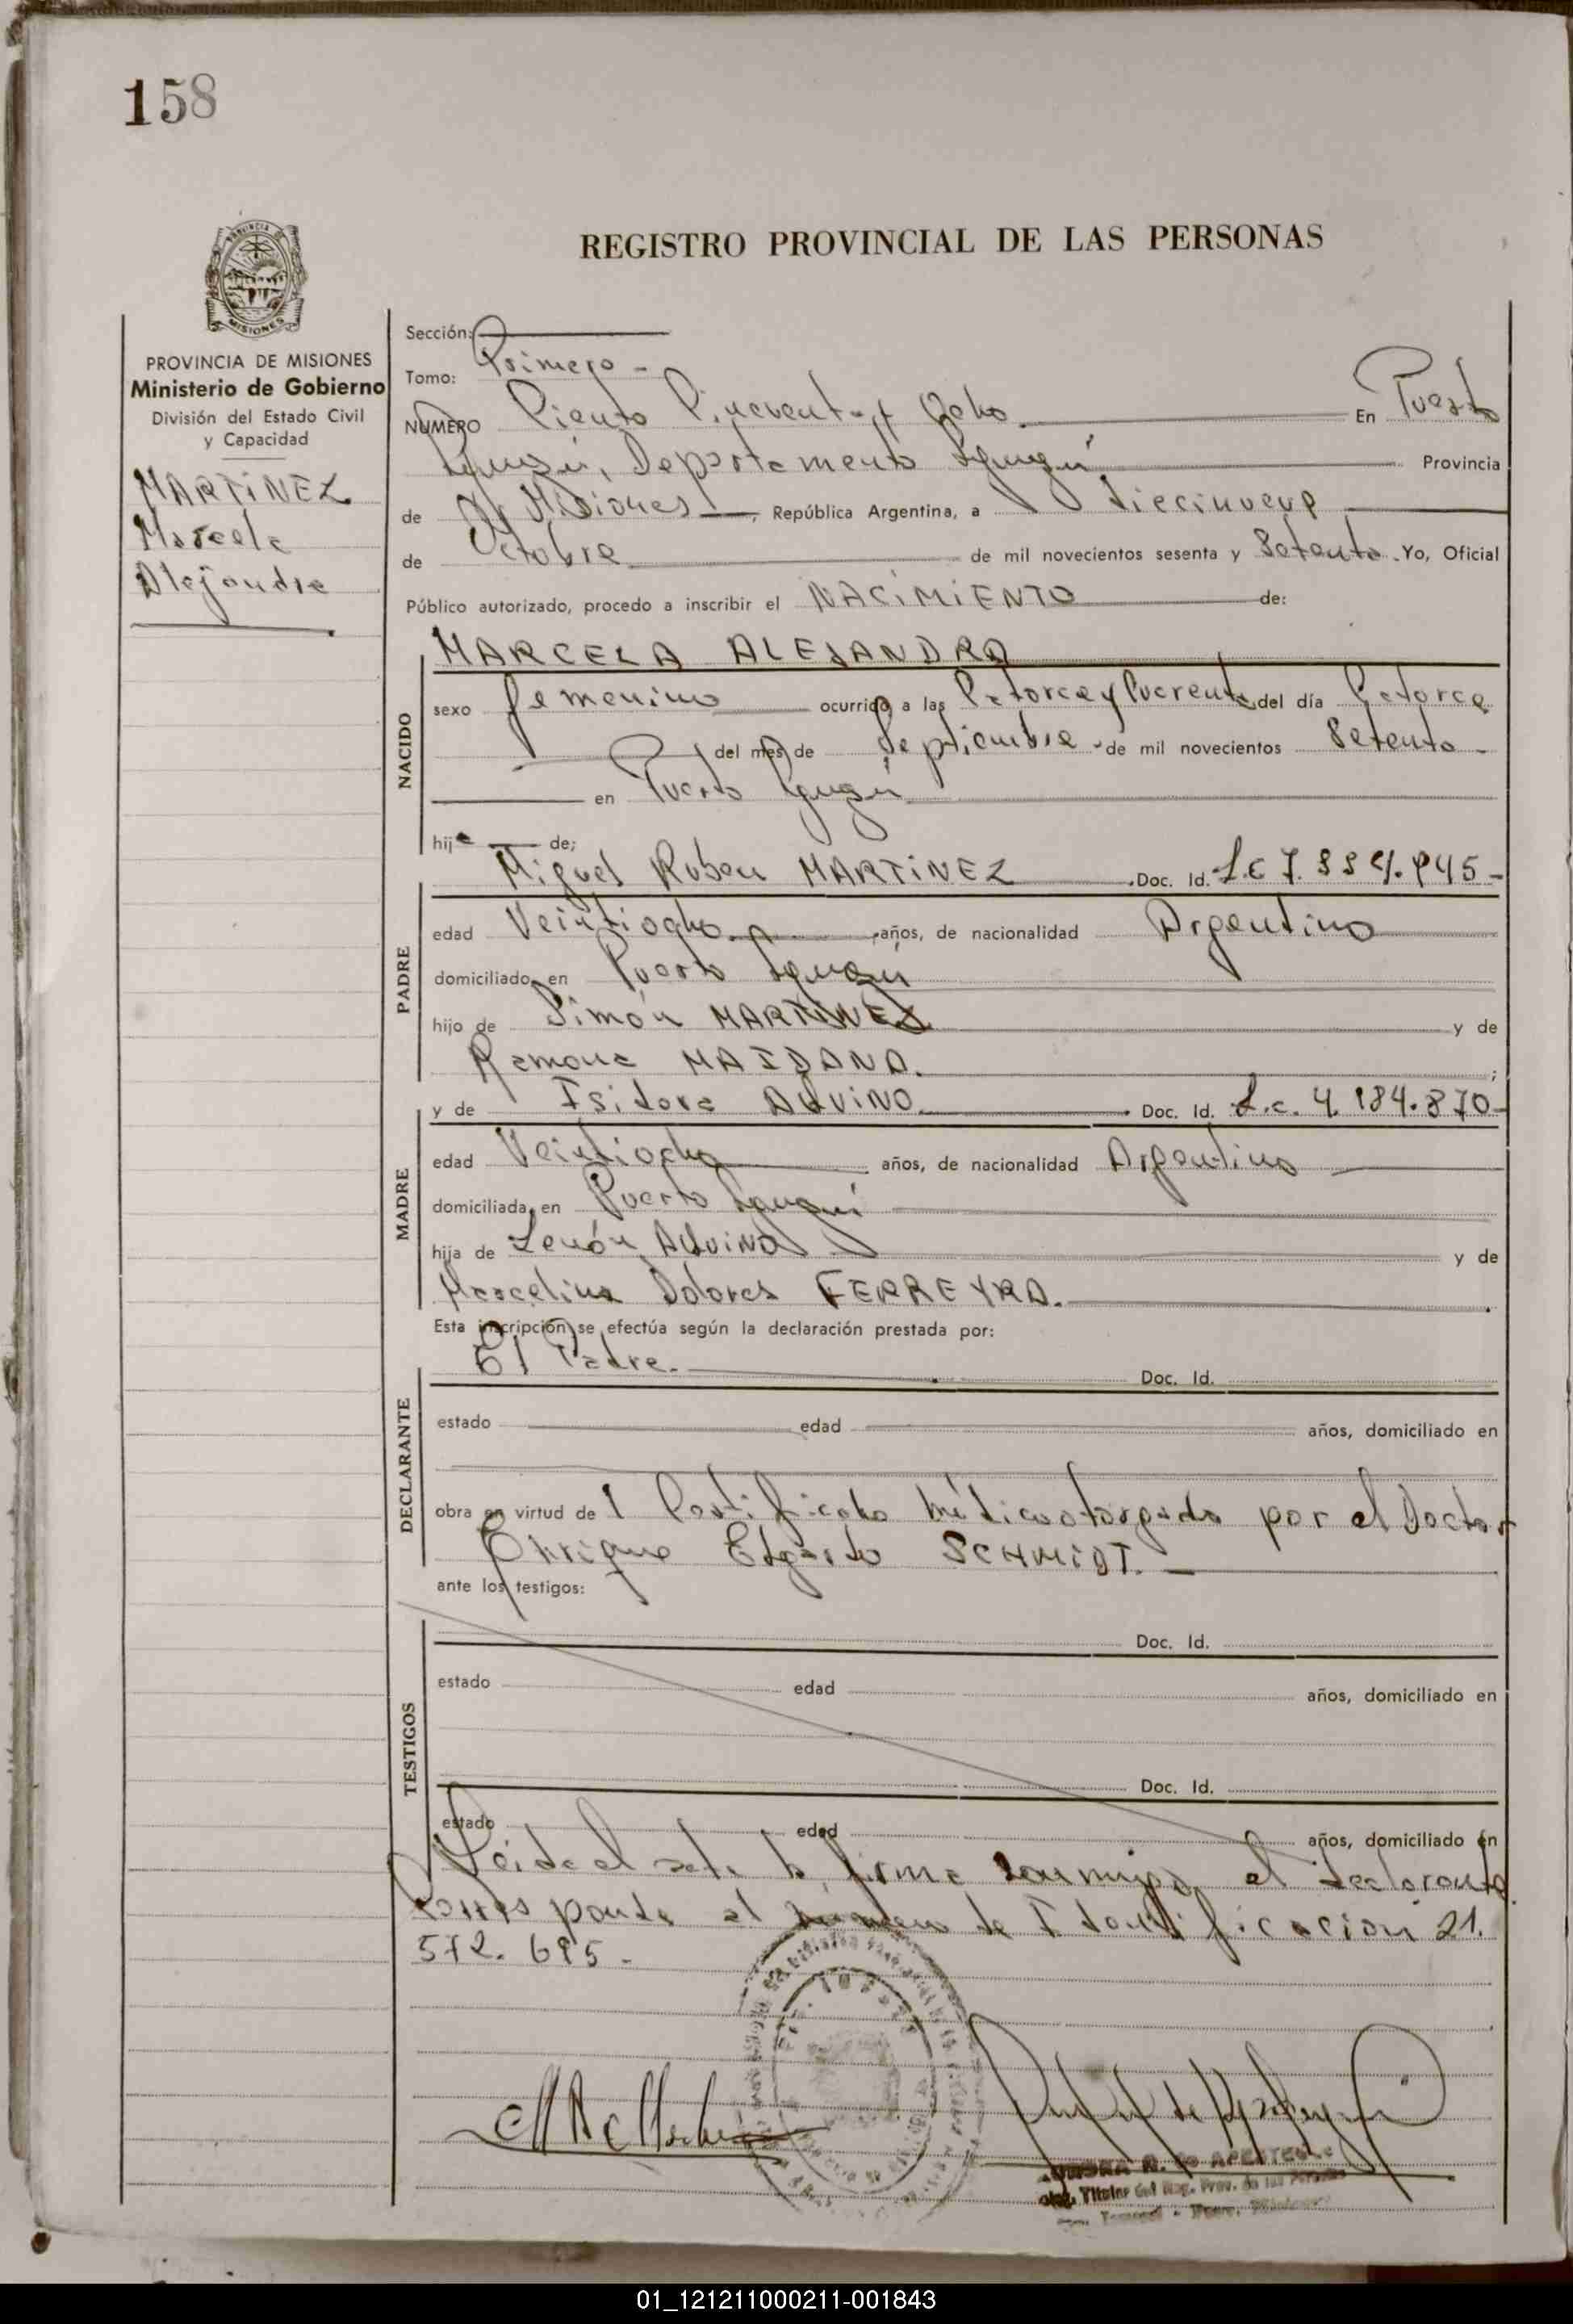 158
REGISTRO PROVINCIAL DE LAS PERSONAS
PROVINCIA DE
MISIONES
PROVINCIA DE MISIONES
Ministerio de Gobierno
División del Estado Civil
y Capacidad
MARTINEZ
Marcela
Alejandra
Sección:
Tomo: Primero -
NUMERO Ciento Cincuenta y Ocho En Puerto
Iguazú, Departamento Iguazú Provincia
de Misiones, República Argentina, a diecinueve
de Octubre de mil novecientos sesenta y Setenta. Yo, Oficial
Público autorizado, procedo a inscribir el NACIMIENTO de:
MARCELA ALEJANDRA
NACIDO
sexo femenino ocurrido a las Catorce y Cuarenta del día Catorce
del mes de Septiembre de mil novecientos Setenta -
en Puerto Iguazú
hija de;
Miguel Ruben MARTINEZ Doc. Id. L.E 7.
PADRE
edad Veintiocho años, de nacionalidad Argentino
domiciliado en Puerto Iguazú
hijo de Simón MARTINEZ y de
Ramona MAIDANA. ;
y de Isidora AQUINO Doc. Id. L.c. 4.184.870-
MADRE
edad Veintiocho años, de nacionalidad Argentina
domiciliada en Puerto Iguazú
hija de Zenón AQUINO y de
Marcelina Dolores FERREYRA.
Esta inscripción se efectúa según la declaración prestada por:
El Padre. Doc. Id.
DECLARANTE
estado edad años, domiciliado en
obra en virtud de 1 Certificado médico otorgado por el Doctor
Enrique Edgardo SCHMIDT. -
ante los testigos:
Doc. Id.
TESTIGOS
estado edad años, domiciliado en
Doc. Id.
estado edad años, domiciliado en
Leida el acta la firma conmigo el declarante
Corresponde al número de Identificación 21.
572.695 -
01_121211000211-001843